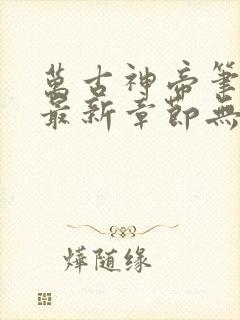 萬古神帝筆
最新章節無
燁随缘